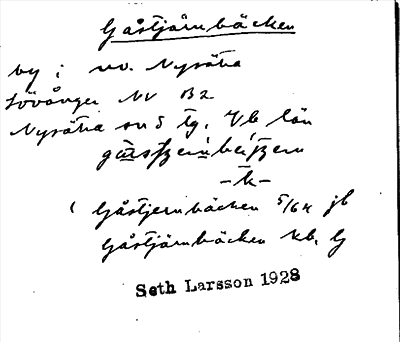 Gåstjärnbäcken
by i nv. Nysätra
Lövånger NV B2
Nysätra sn s tg. Vb län
-k-
Gåstjernbäcken 5/6 k jb
Gåstjärnbäcken kb. G
Seth Larsson 1928